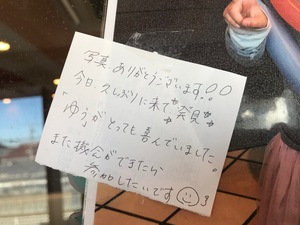 写真、ありがとうございます!!
今日、久しぶりに来て発見
「ゆう」がとっても喜んでいました。
また機会ができたら
参加したいです